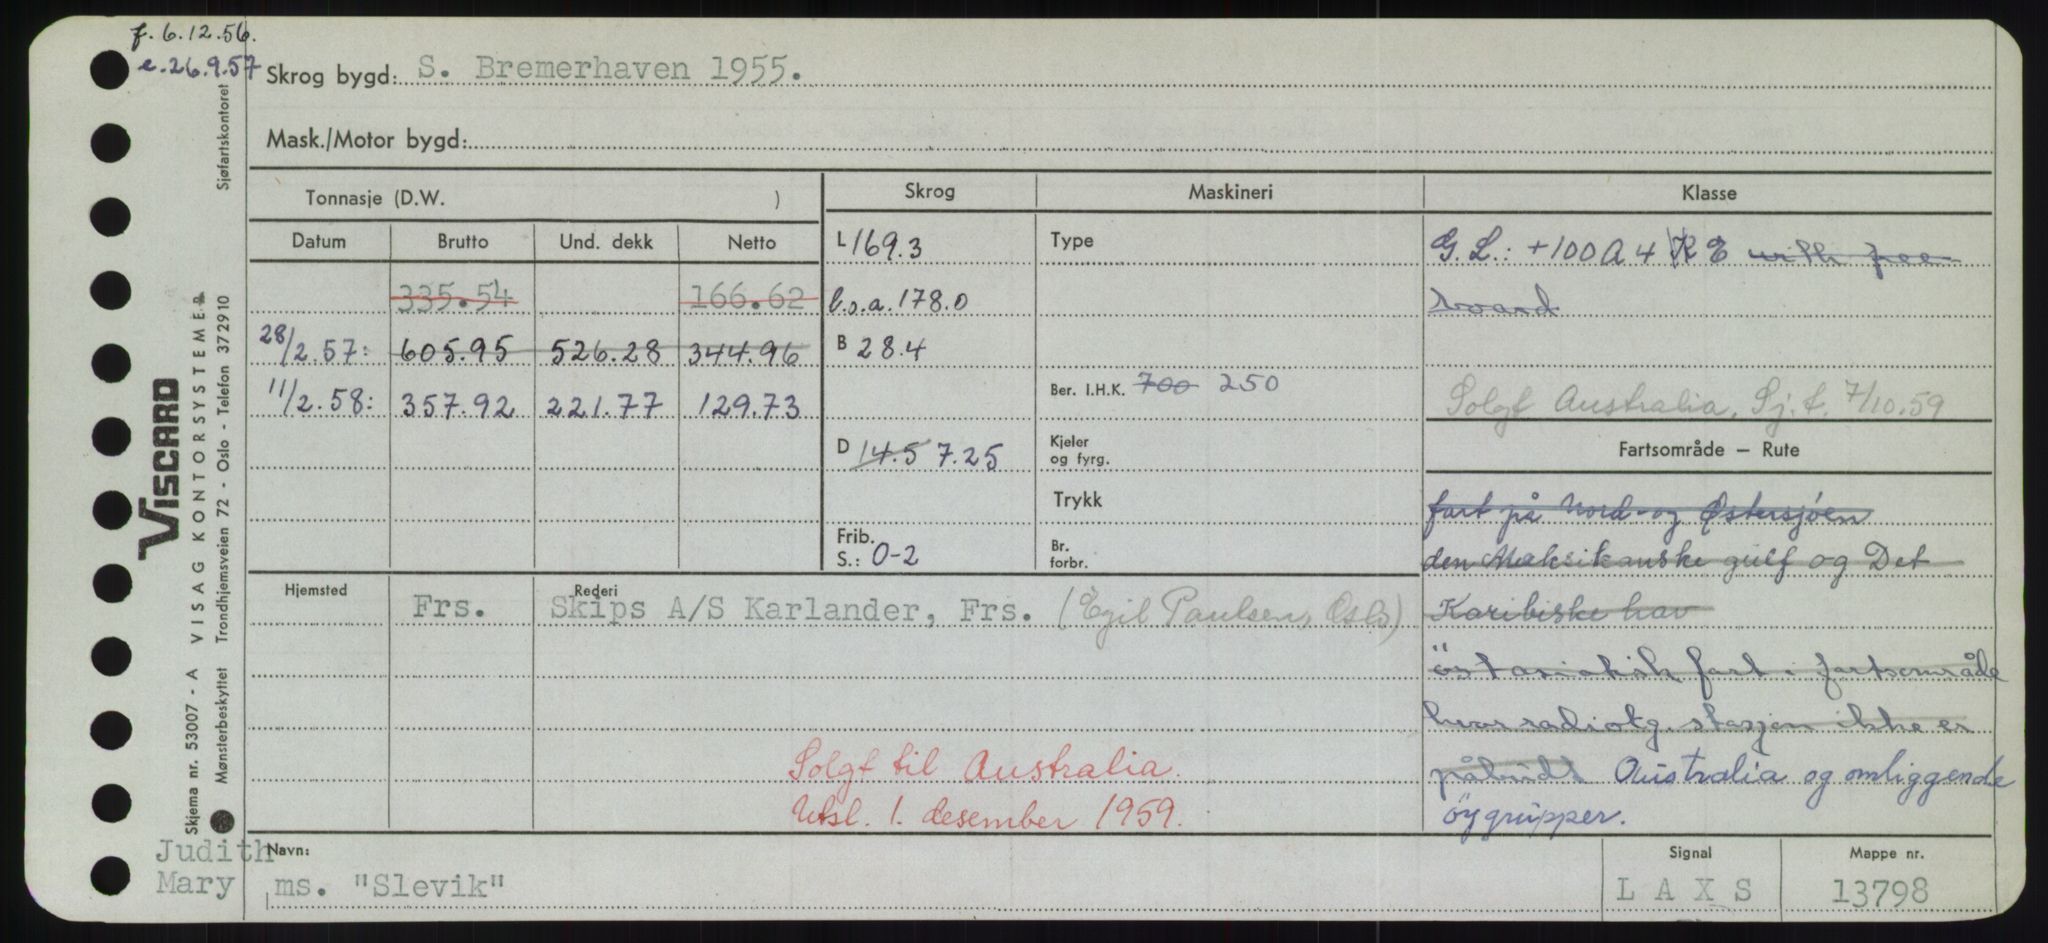 f. 6.12.56.
e. 26.9.57
Skrog bygd: S. Bremerhaven 1955.
Mask./Motor bygd:
Tonnasje (D.W. )
Skrog
Maskineri
Klasse
Datum Brutto Und. dekk Netto
335.54 166.62
28/2.57: 605.95 526.28 344.96
11/2.58: 357.92 221.77 129.73
L 169.3
l.o.a. 178.0
B 28.4
D 14.5 7.25
Frib.
S.: 0-2
Type
Ber. I.H.K. 700 250
Kjeler
og fyrg.
Trykk
Br.
forbr.
G.L.: +100 A 4 K E with free
board
Solgt Australia, Sj.f. 7/10.59
Fartsområde — Rute
fart på Nord- og Østersjøen
den Meksikanske gulf og Det
Karibiske hav
öst asiatisk fart i fartsområde
hvor radiotg. stasjon ikke er
påbudt Australia og omliggende
öygrupper.
Hjemsted Rederi
Frs. Skips A/S Karlander, Frs. (Egil Paulsen, Oslo)
Solgt til Australia.
Utsl. 1. desember 1959.
Judith
Mary
Navn:
ms. "Slevik"
Signal
L A X S
Mappe nr.
13798
VISCARD
VISAG KONTORSYSTEMER
Skjema nr. 53007 - A
Mønsterbeskyttet Trondhjemsveien 72 - Oslo - Telefon 372910
Sjøfartskontoret